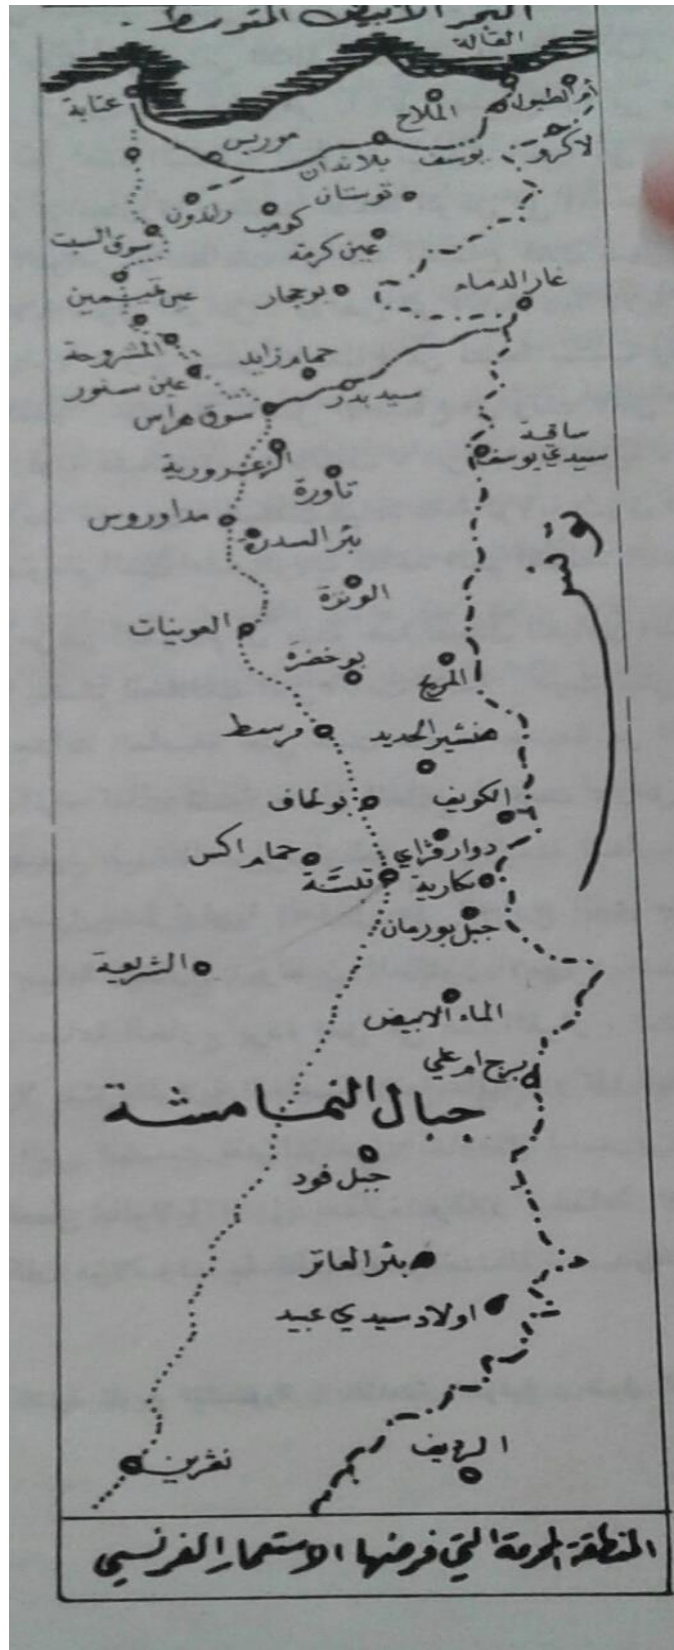 البحر الأبيض المتوسط.
القالة
عنابة
أم الطبول
الملاح
لاكروا
موريس
بلاندان
يوسف
توستان
كومب
سوق السبت
عين كرمة
بوحجار
غار الدماء
المشروحة
حمام زايد
عين سنور
سيد بدر
سوق هراس
ساقية
سيدي يوسف
الزعرورية
تاورة
مداوروس
بئر السدرة
تونس
الونزة
العوينات
بوخضرة
المريج
مرسط
هنشير الحديد
بولحاف
الكويف
دوار قراي
حمام اكس
تبسّة
بكارية
جبل بورمان
الشريعة
الماء الابيض
برج ام علي
جبال النمامشة
جبل فود
بئر العاتر
اولاد سيدي عبيد
نقرين
المنطقة المحرمة التي فرضها الاستعمار الفرنسي